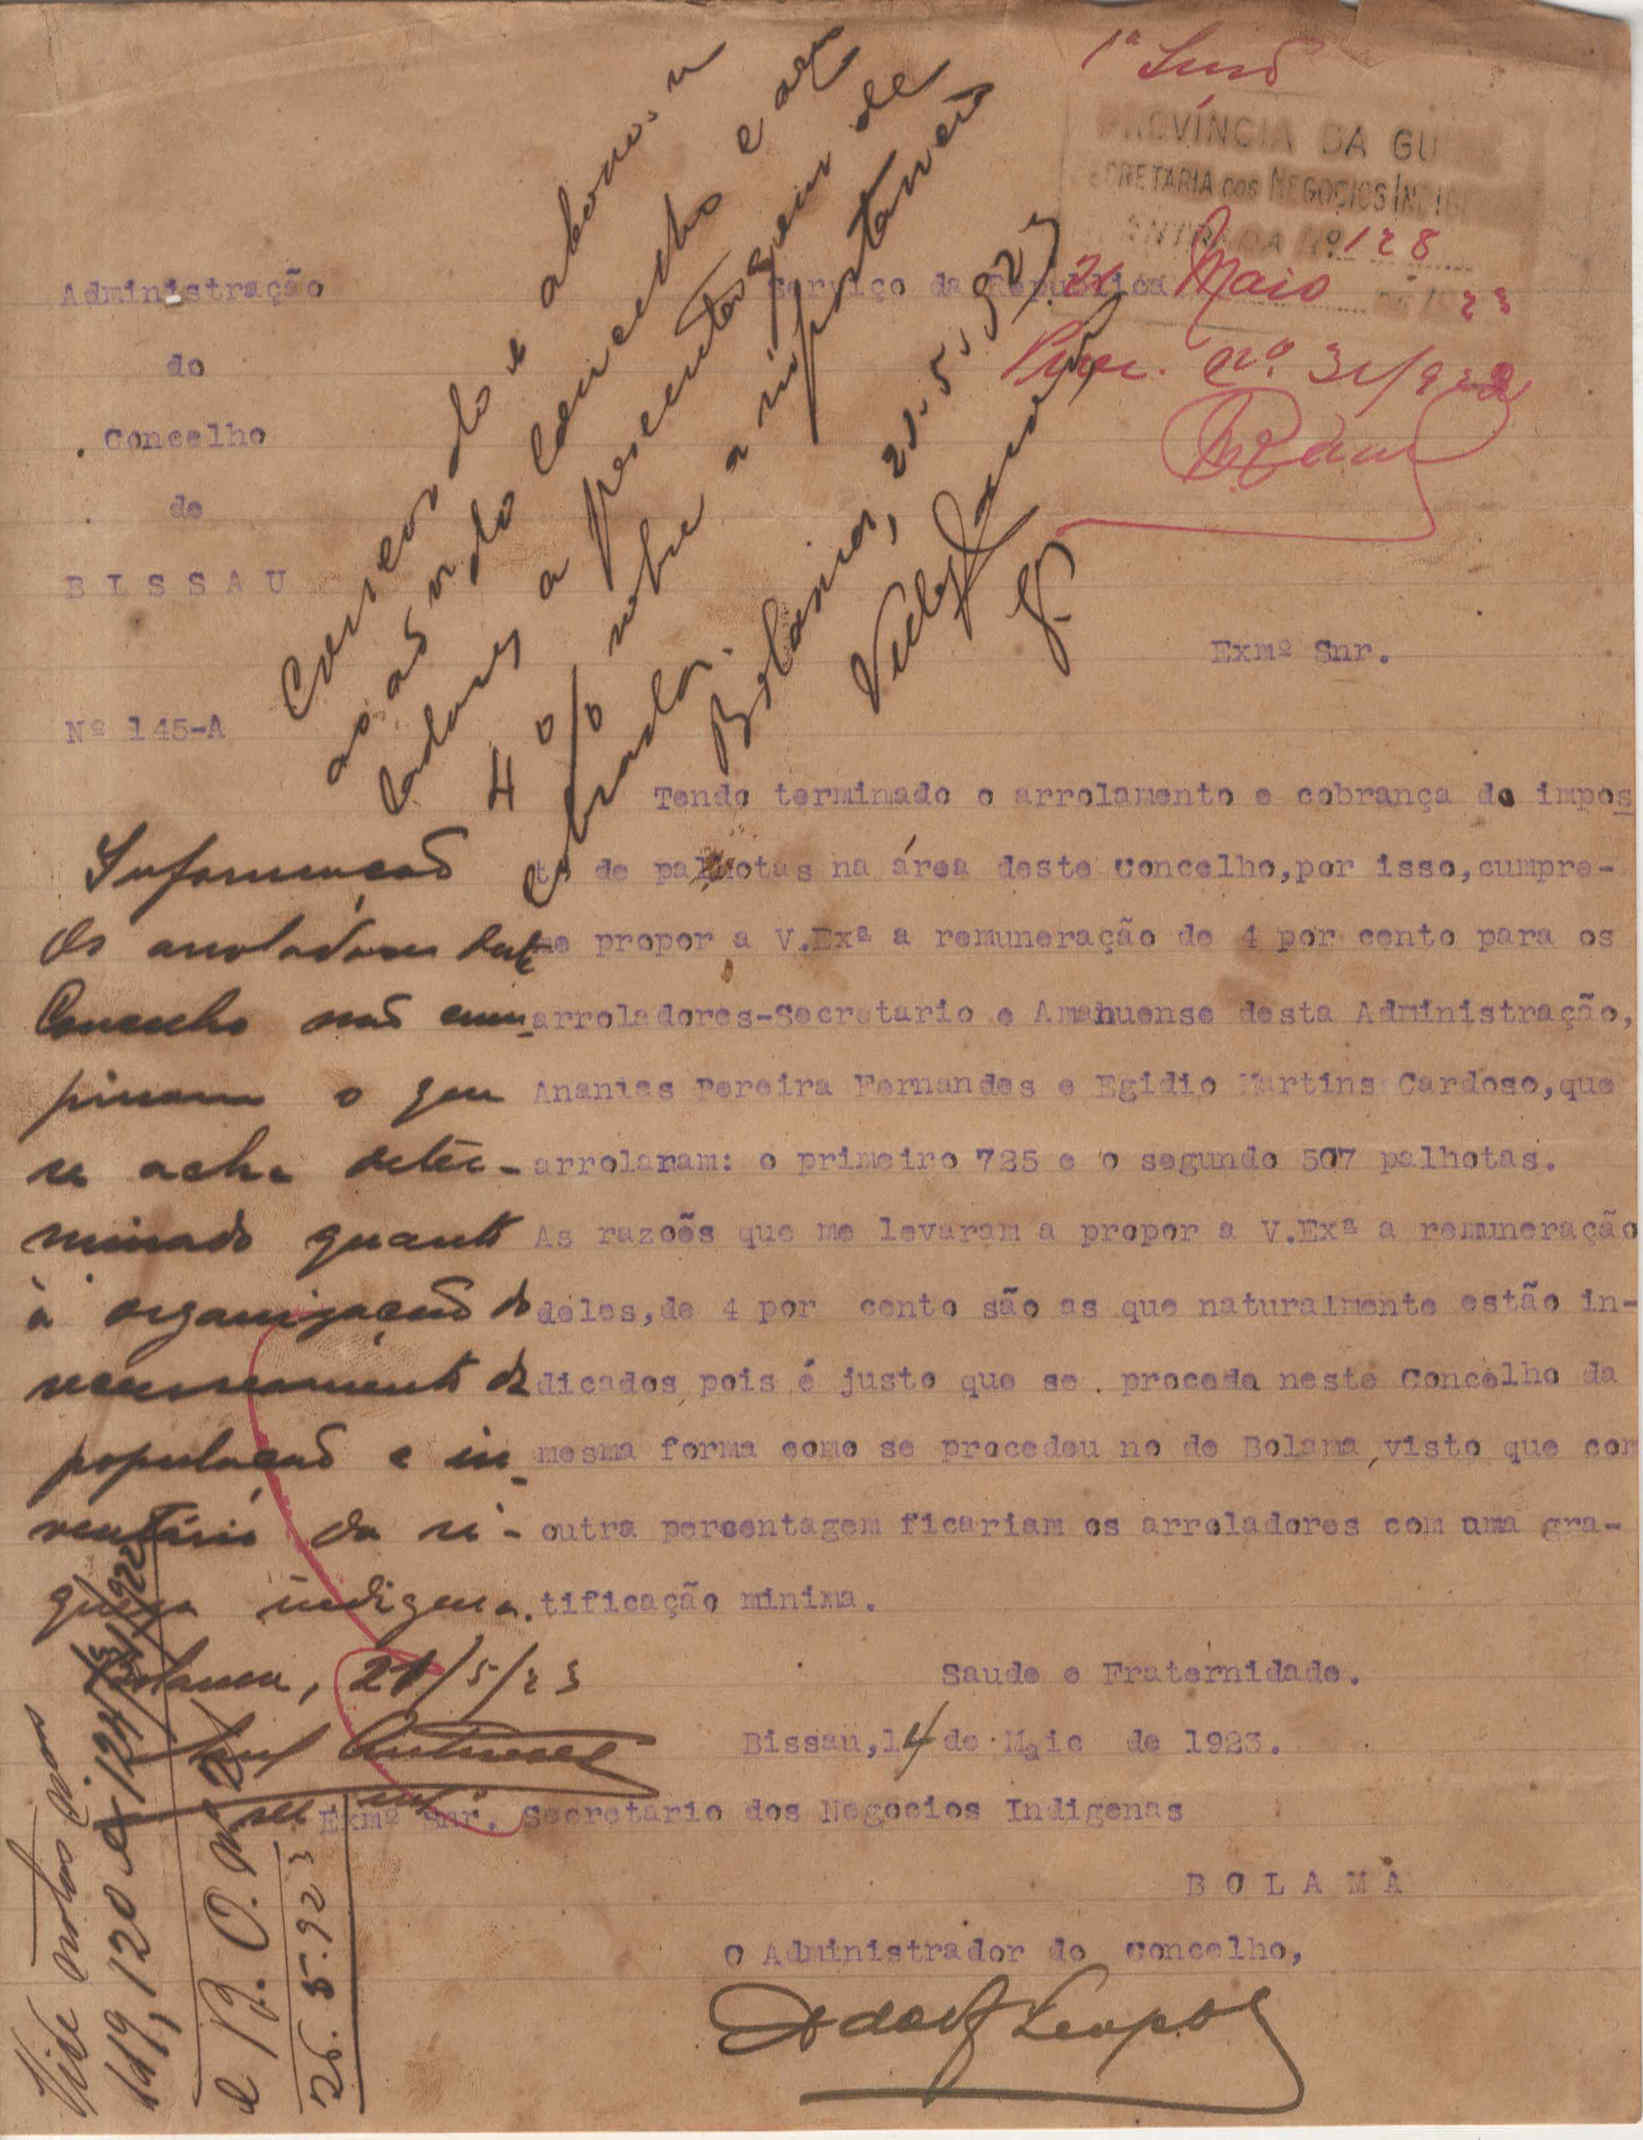 1ª Secção
PROVÍNCIA DA GU
SECRETARIA dos NEGOCIOS INDIG
ENTRADA Nº 128
21 Maio de 1923
Proc. nº 31/922
Administração
do
Concelho
de
BISSAU
Nº 145-A
Serviço da Republica
Concordo e abone-se
aos do Concelho e
a percentagem de
4% sobre a importancia
cobrada.
Bolama, 21.5.923
Exmº Snr.
Tendo terminado o arrolamento e cobrança do impos
to de palhotas na área deste Concelho,por isso,cumpre-
me propor a V.Exª a remuneração de 4 por cento para os
arroladores-Secretario e Amanuense desta Administração,
Ananias Pereira Fernandes e Egidio Martins Cardoso,que
arrolaram: o primeiro 725 e o segundo 507 palhotas.
As razoēs que me levaram a propor a V.Exª a remuneração
deles,de 4 por cento são as que naturalmente estão in-
dicados pois é justo que se procede neste Concelho da
mesma forma como se procedeu no de Bolama,visto que com
outra percentagem ficariam os arroladores com uma gra-
tificação minima.
Saude e Fraternidade.
Bissau,14 de Maio de 1923.
Exmº Snr. Secretario dos Negocios Indigenas
BOLAMA
O Administrador do Concelho,
Informação
Os arroladores deste
Concelho não cum-
priram o que
se acha deter-
minado quanto
à organização do
recenseamento da
população e in-
ventário da ri-
queza indigena.
Bolama, 21/5/23
Antunes
Vide notas
119, 120 e 124
e B. O. Nº
26.5.923